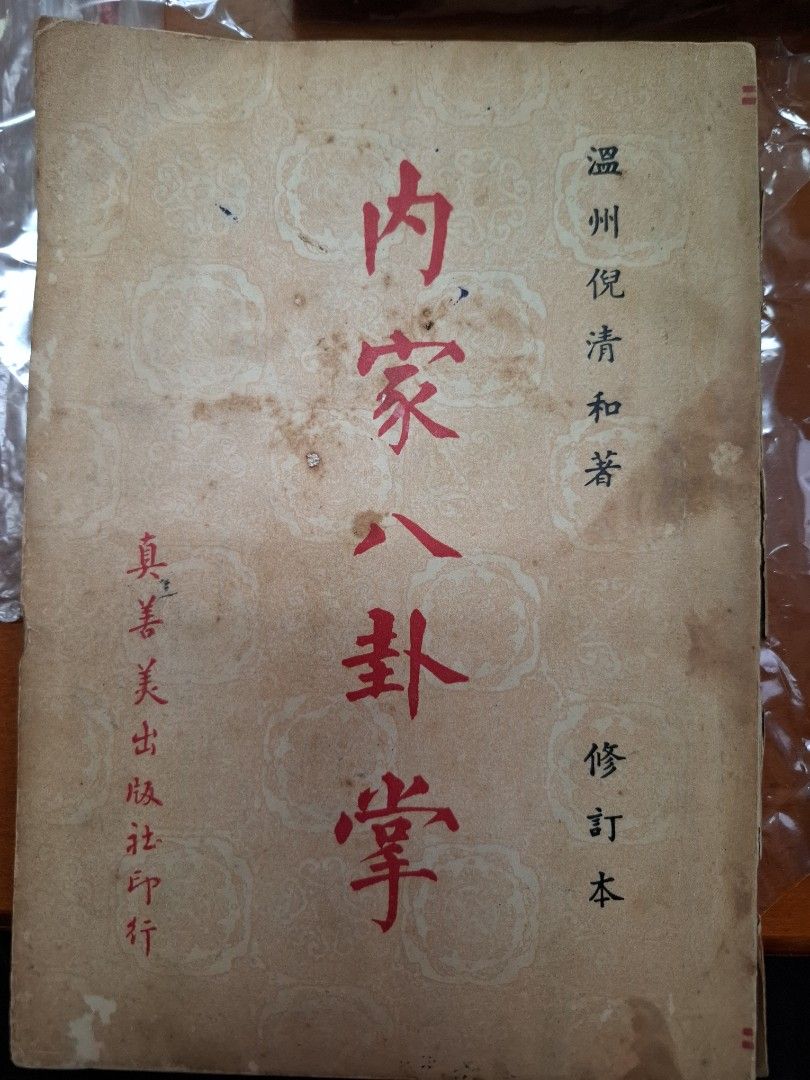 溫州倪清和著
修訂本
内家八卦掌
真善美出版社印行